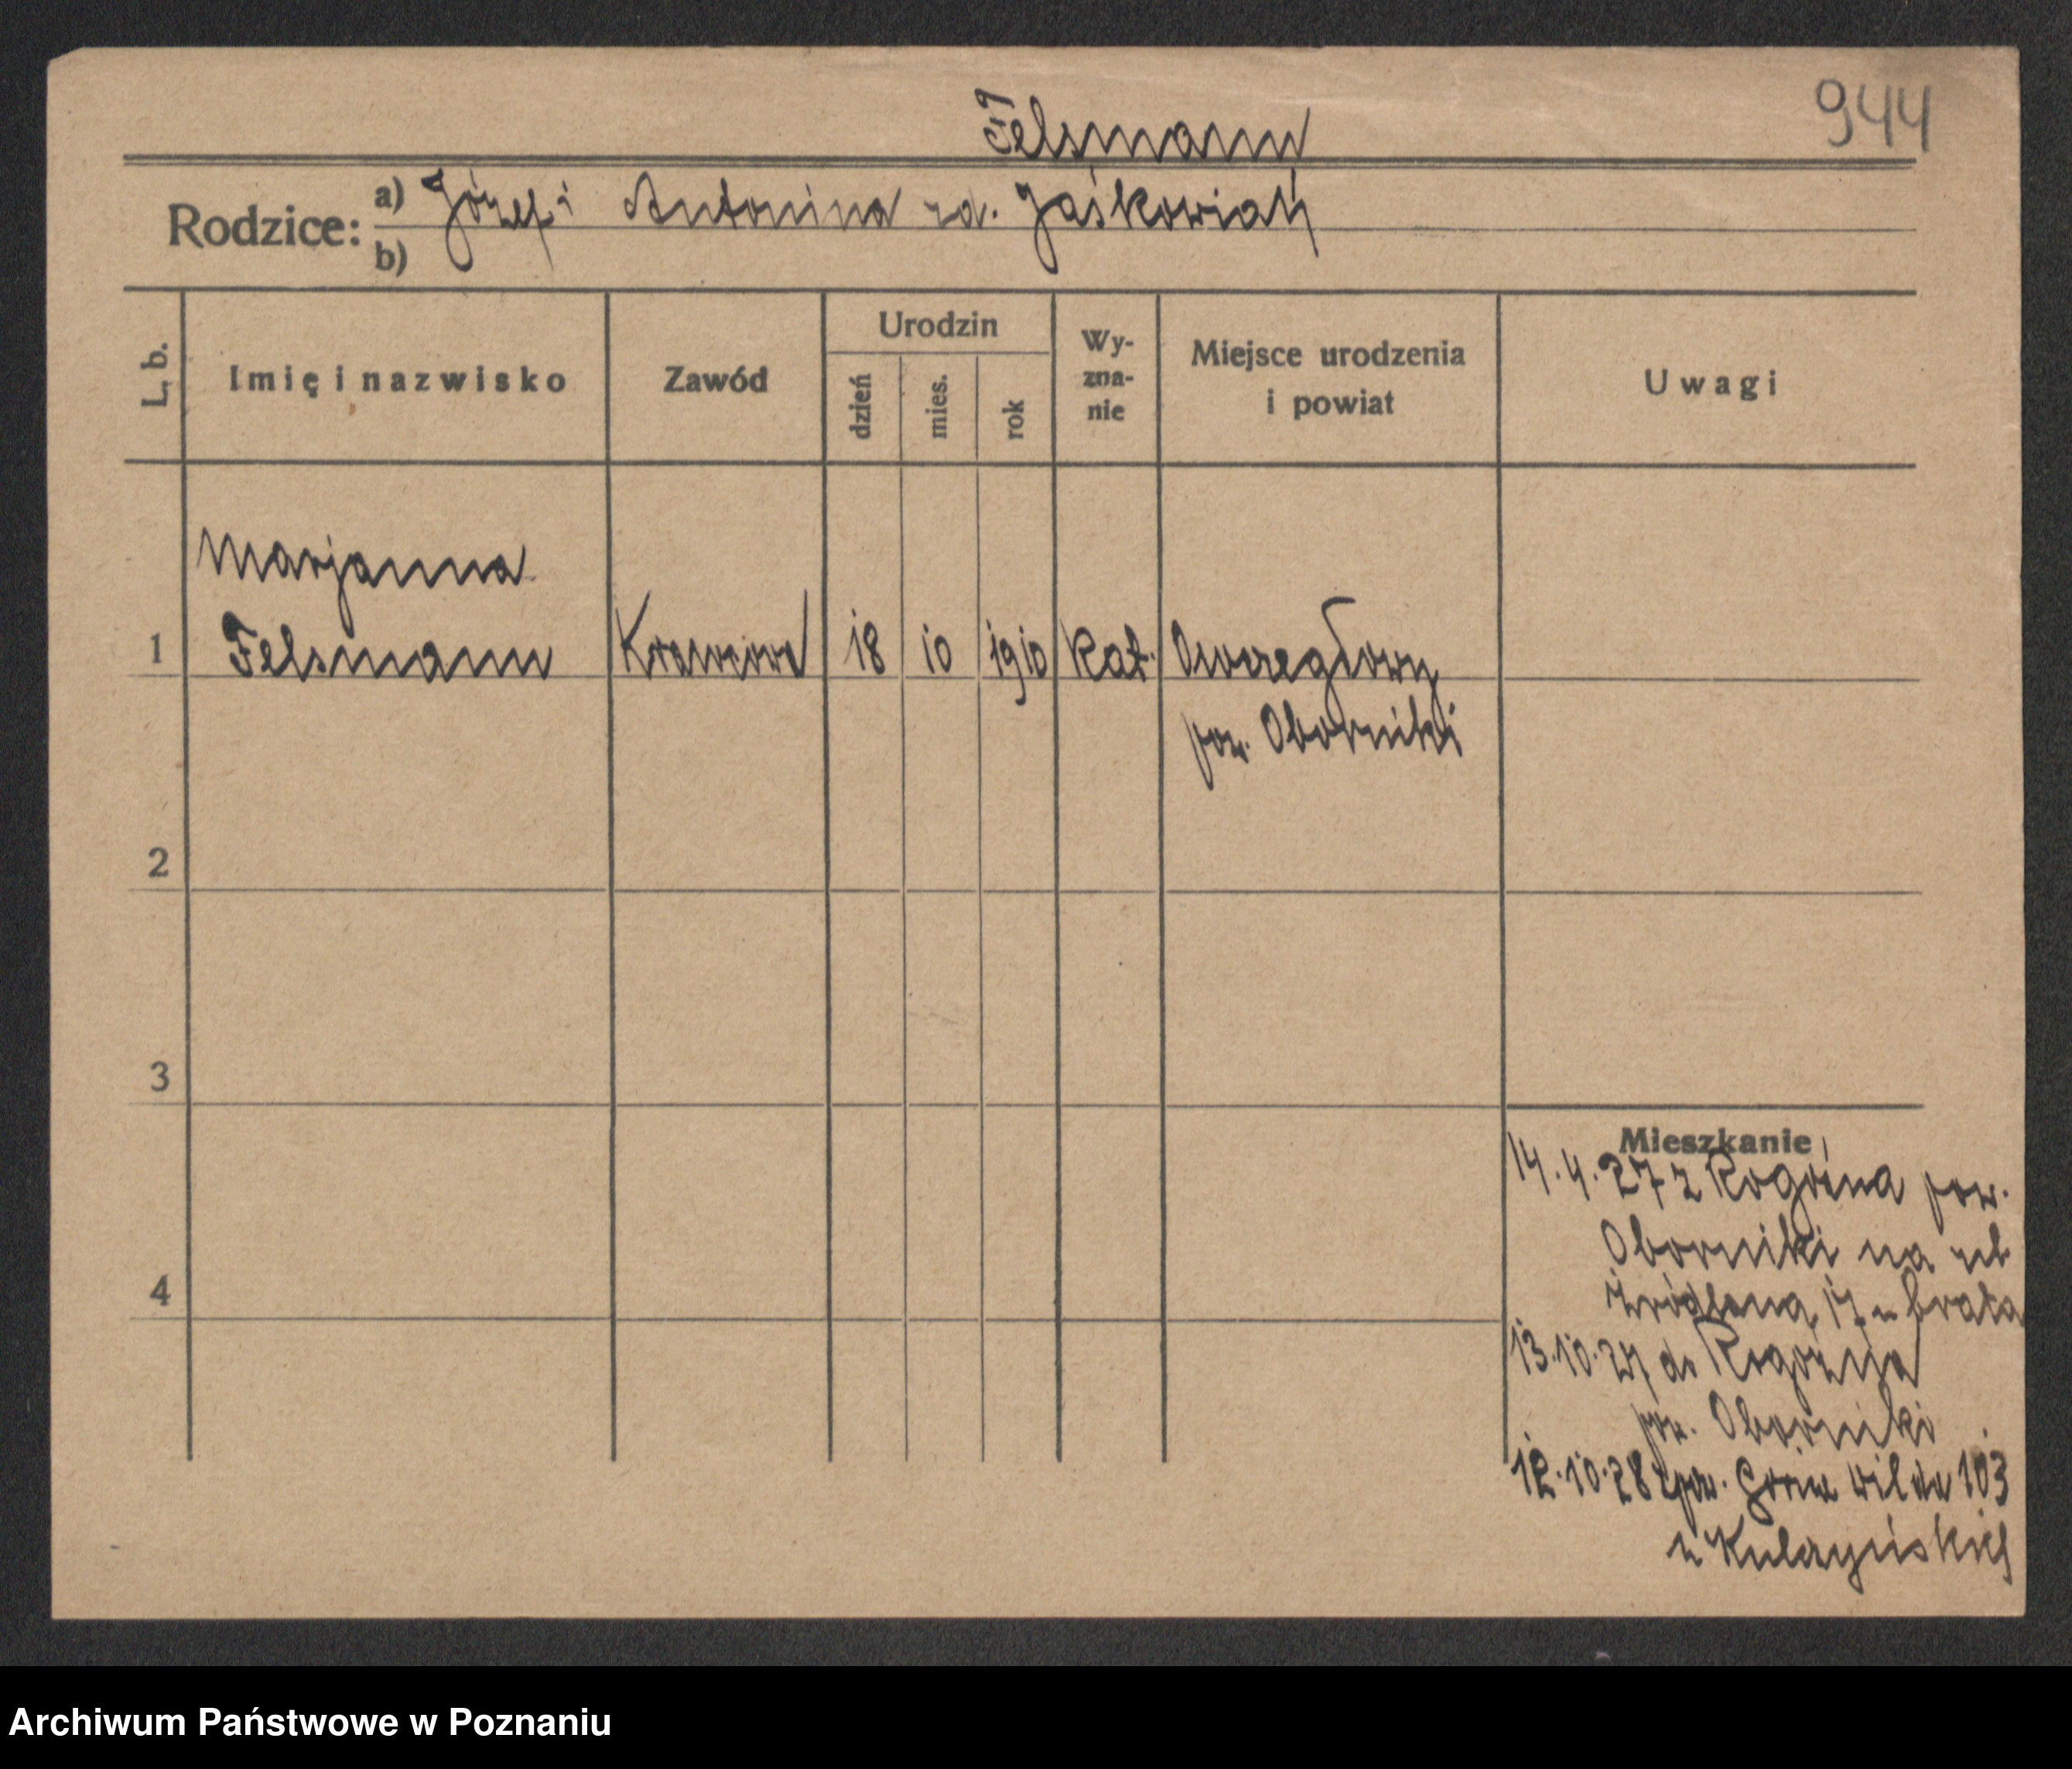 944
Felsmann
Rodzice: a) Józef i Antonina zd. Jaśkowiak
b)
L. b. Imię i nazwisko Zawód Urodzin dzień mies. rok Wy-zna-nie Miejsce urodzenia i powiat Uwagi
Marjanna
1 Felsmann Krawcowa 18 10 1910 Kat. Owczegłowy
pow. Oborniki
2
3
Mieszkanie
14.4.27 z Rogoźna pow.
Oborniki na ul.
4
17 u brata
13.10.27 do Rogoźna
pow. Oborniki
12.10.28 zpow. Górna Wilda 103
u
Archiwum Państwowe w Poznaniu